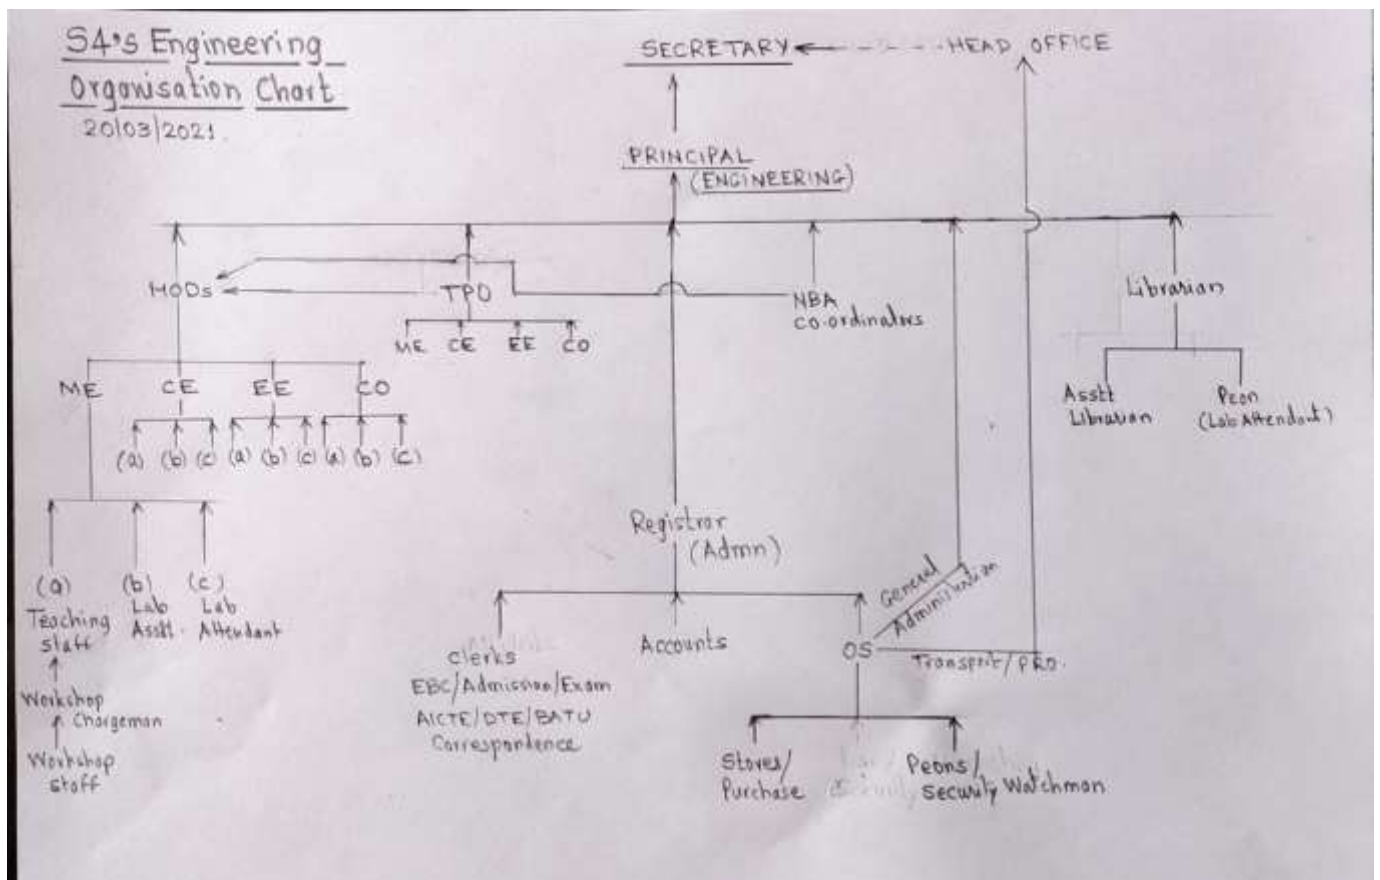 S4's Engineering
Organisation Chart
20/03/2021.
SECRETARY
HEAD OFFICE
PRINCIPAL
(ENGINEERING)
HODs
TPO
NBA
Co-ordinators
Librarian
ME CE EE CO
ME CE EE CO
Asstt
Librarian
Peon
(Lab Attendant)
(a) (b) (c) (a) (b) (c) (a) (b) (c)
Registrar
(Admn)
(a)
Teaching
staff
(b)
Lab
Asstt.
(c)
Lab
Attendant
Workshop
Chargeman
Workshop
staff
Clerks
EBC/Admission/Exam
AICTE/DTE/BATU
Correspondence
Accounts
OS
General
Administration
Transport/PRO.
Stores/
Purchase
Peons/
Security Watchman